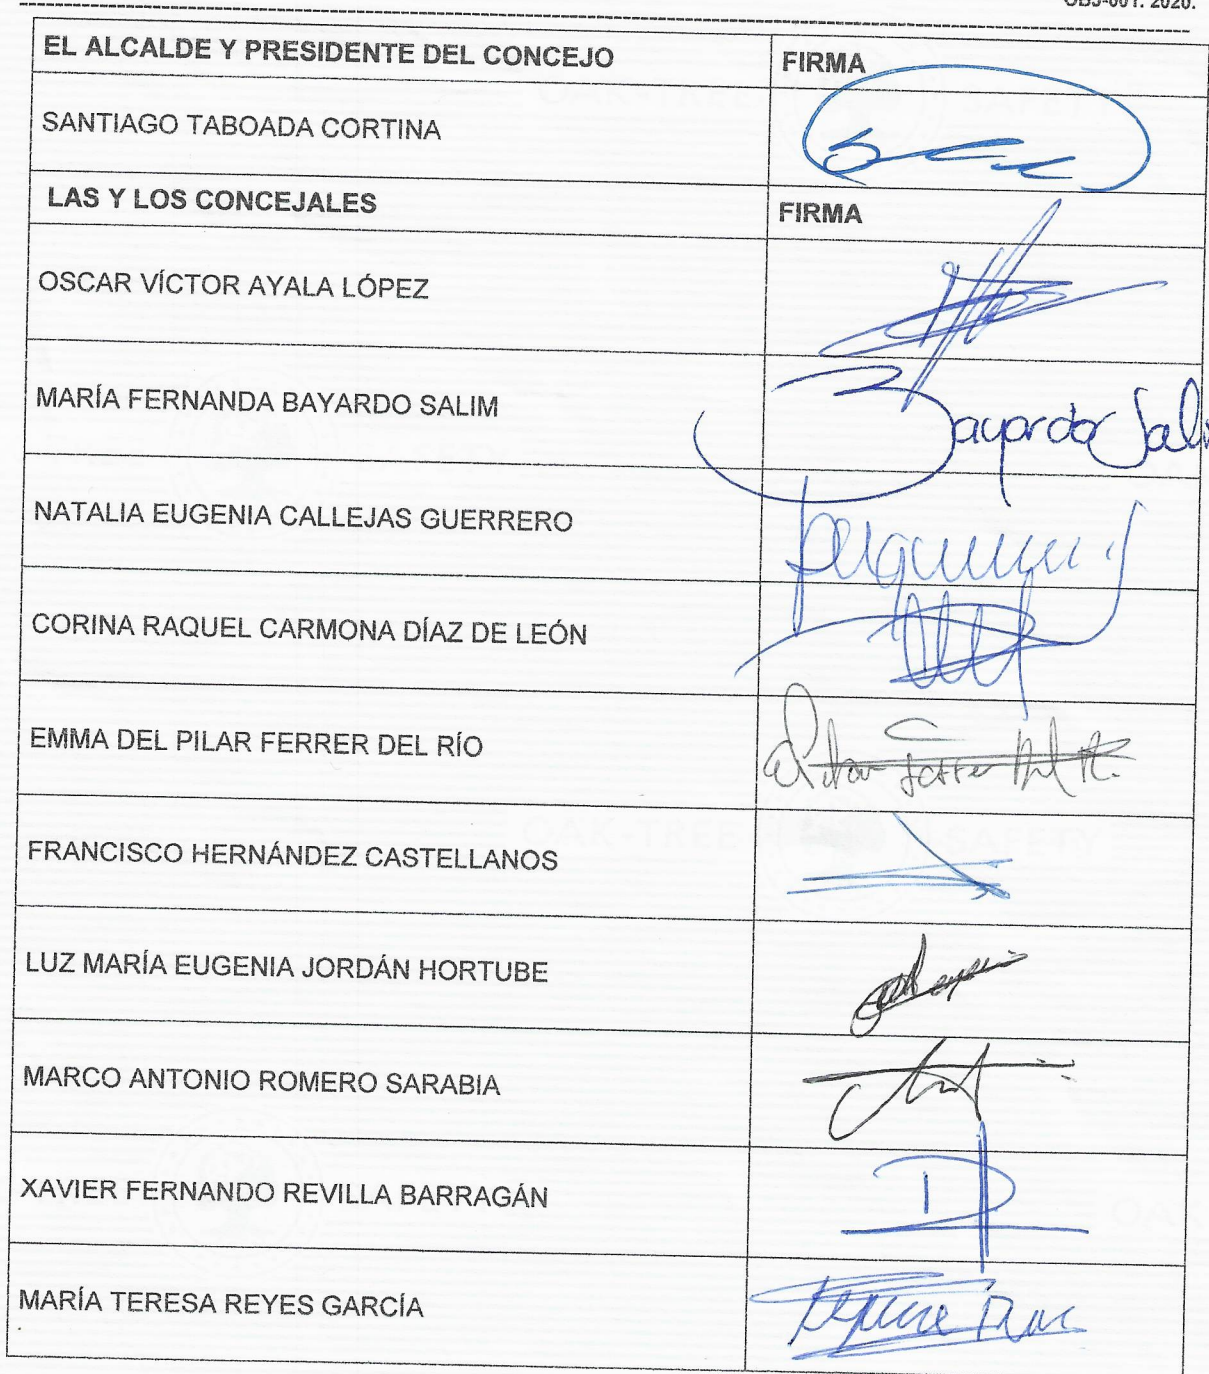 OBJ-001. 2020.
EL ALCALDE Y PRESIDENTE DEL CONCEJO FIRMA
SANTIAGO TABOADA CORTINA
LAS Y LOS CONCEJALES FIRMA
OSCAR VÍCTOR AYALA LÓPEZ
MARÍA FERNANDA BAYARDO SALIM Bayardo Sali
NATALIA EUGENIA CALLEJAS GUERRERO
CORINA RAQUEL CARMONA DÍAZ DE LEÓN
EMMA DEL PILAR FERRER DEL RÍO
FRANCISCO HERNÁNDEZ CASTELLANOS
LUZ MARÍA EUGENIA JORDÁN HORTUBE
MARCO ANTONIO ROMERO SARABIA
XAVIER FERNANDO REVILLA BARRAGÁN
MARÍA TERESA REYES GARCÍA